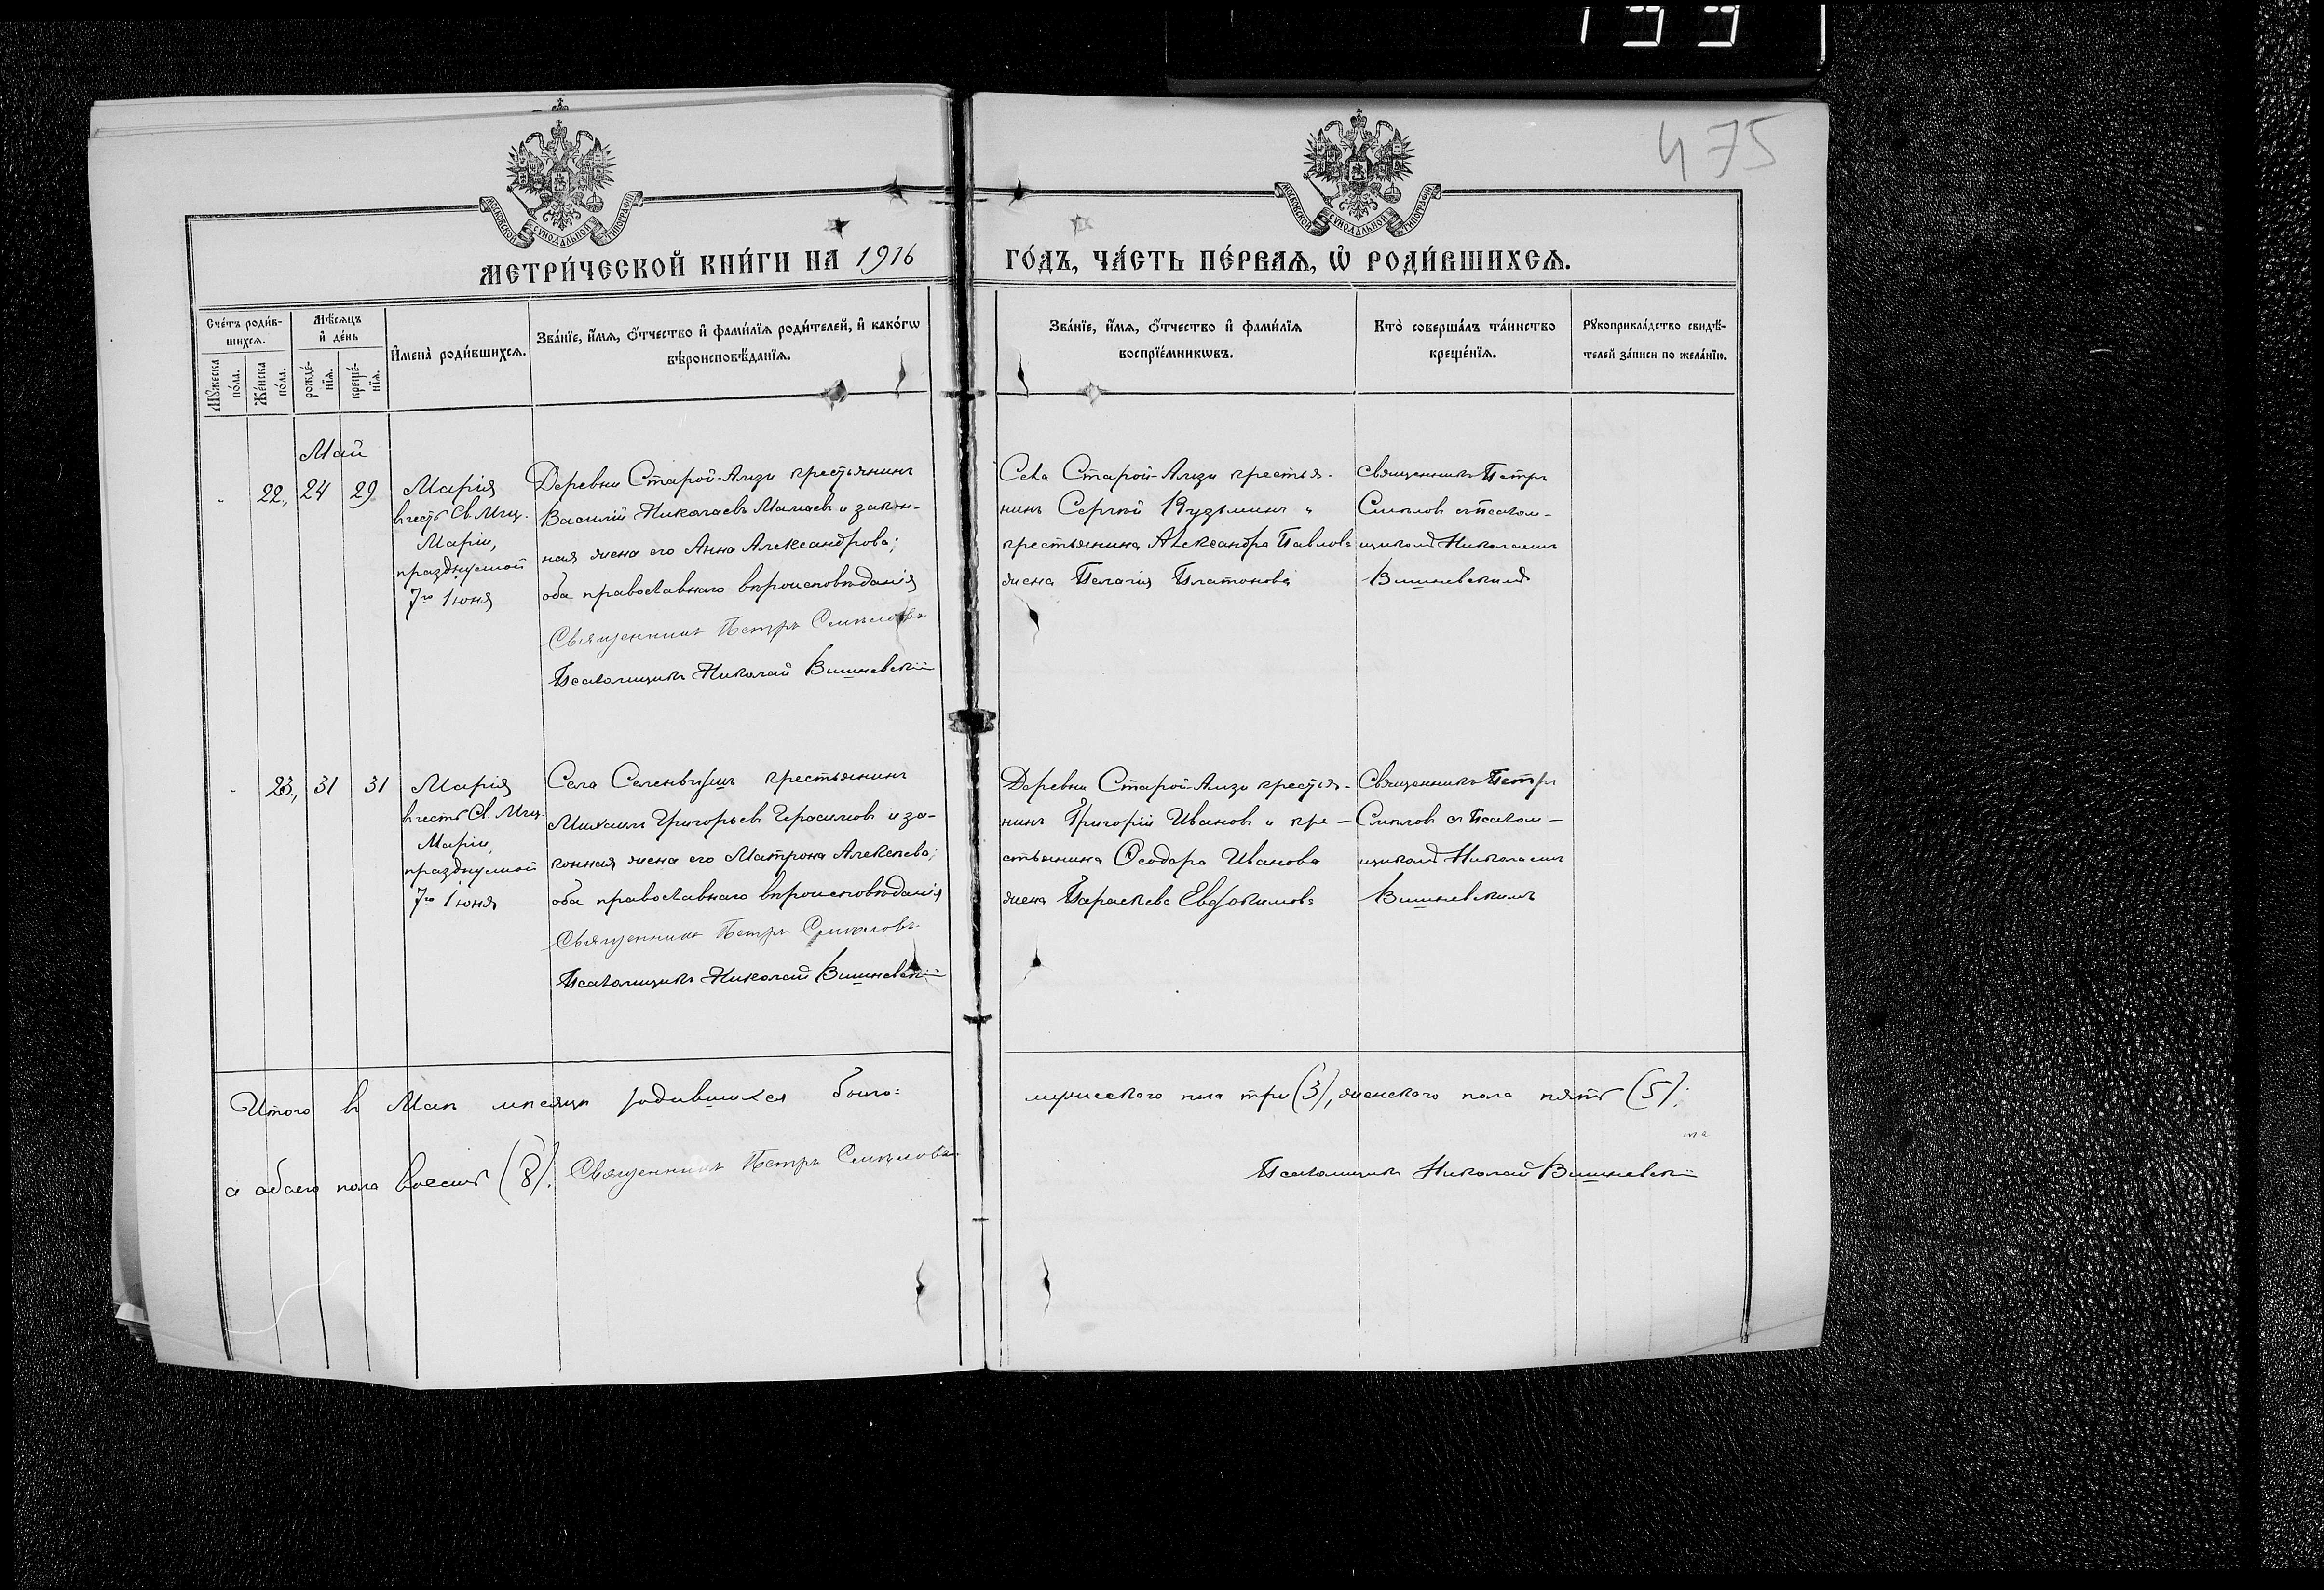 199
475
МОСКОВСКОЙ СѴНОДАЛЬНОЙ ТИПОГРАФІИ
МОСКОВСКОЙ СѴНОДАЛЬНОЙ ТИПОГРАФІИ
МЕТРИ́ЧЕСКОЙ КНИ́ГИ НА 1916
ГО́ДЪ, ЧА́СТЬ ПЕ́РВАѦ, Ѽ РОДИ́ВШИХСѦ.
Сче́тъ роди́в-
шихсѧ.
Мꙋ́жеска
по́ла.
Же́нска
по́ла.
Мѣ́сѧцъ
и҆ де́нь
рожде́-
нїѧ.
креще́-
нїѧ.
И҆мена̀ роди́вшихсѧ.
Зва́нїе, и҆́мѧ, ѻ҆́тчество и҆ фами́лїѧ роди́телей, и҆ како́гѡ
вѣроисповѣ́данїѧ.
Зва́нїе, и҆́мѧ, ѻ҆́тчество и҆ фами́лїѧ
воспрїе́мникѡвъ.
Кто̀ соверша́лъ та́инство
креще́нїѧ.
Рꙋкоприкла́дство свидѣ́-
телей за́писи по жела́нїю.
Май
22, 24 29
Марія
въ честь Св. Мчц.
Маріи,
празднуемой
7го Іюня
Деревни Старой-Ализи крестьянинъ
Василій Николаевъ Мамаевъ и закон-
ная жена его Анна Александрова;
оба православнаго вѣроисповѣданія
Священникъ Петръ Смѣловъ
Псаломщикъ Николай Вишневскій
Села Старой-Ализи крестья-
нинъ Сергѣй Кузьминъ и
крестьянина Александра Павлова
жена Пелагія Платонова
Священникъ Петръ
Смѣловъ съ Псалом-
щикомъ Николаемъ
Вишневскимъ
23, 31 31
Марія
въ честь Св. Мчц.
Маріи,
празднуемой
7го Іюня
Села крестьянинъ
Михаилъ Григорьевъ Герасимовъ и за-
конная жена его Матрона Алексѣева;
оба православнаго вѣроисповѣданія
Священникъ Петръ Смѣловъ
Псаломщикъ Николай Вишневскій
Деревни Старой-Ализи крестья-
нинъ Григорій Ивановъ и кре-
стьянина Ѳеодора Иванова
жена Параскева Евдокимова
Священникъ Петръ
Смѣловъ съ Псалом-
щикомъ Николаемъ
Вишневскимъ
Итого въ Маѣ мѣсяцѣ родившихся было:
мужескаго пола три (3), женскаго пола пять (5);
а обоего пола восемь (8). Священникъ Петръ Смѣловъ
Псаломщикъ Николай Вишневскій